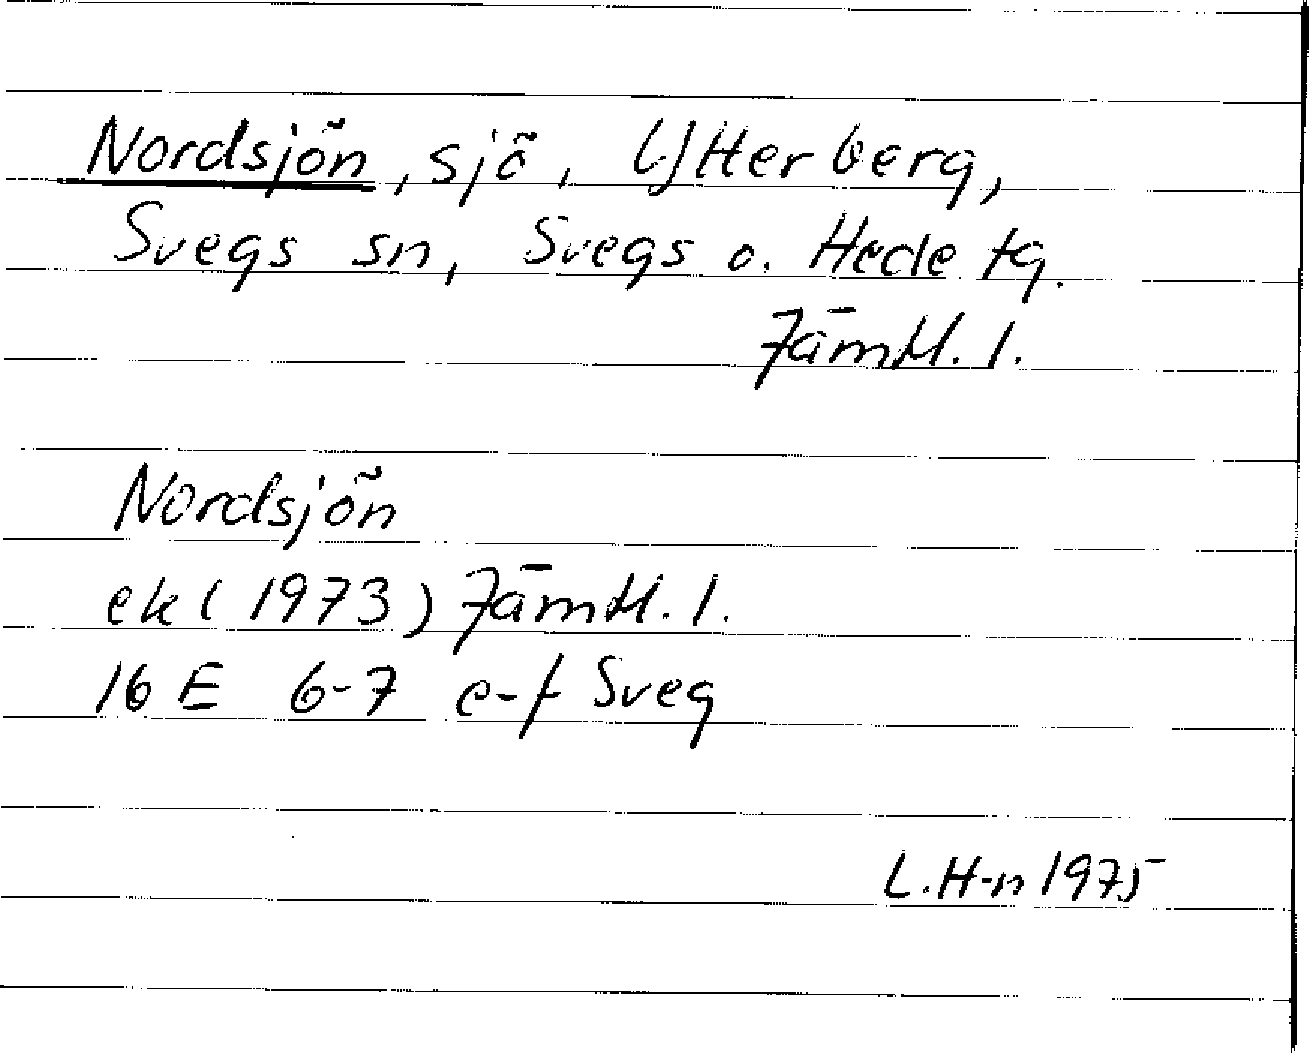 Nordsjön, sjö, Ytterberg,
Svegs sn, Svegs o. Hede tg.
Jämtl. l.
Nordsjön
ek (1973) Jämtl. l.
16 E 6-7 e-f Sveg
L. H-n 1975